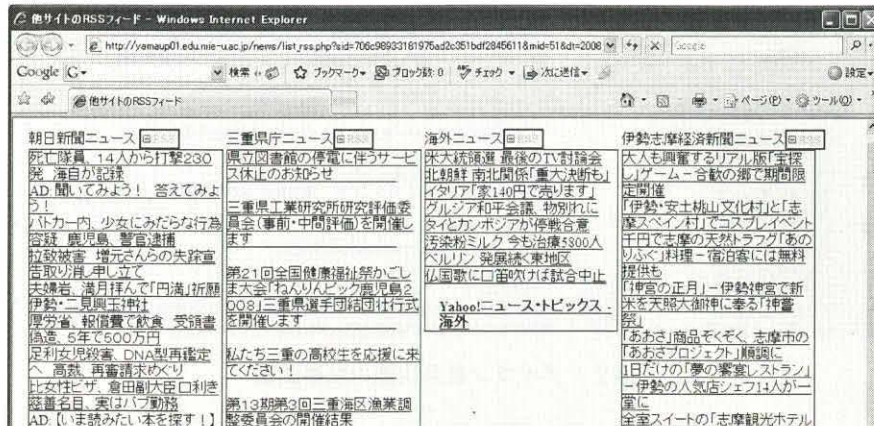 他サイトのRSSフィード - Windows Internet Explorer
http://yamaup01.edu.mie-u.ac.jp/news/list_rss.php?sid=706c98933181975ad2c351bdf2845611&mid=51&dt=2008
Google
Google G
検索
ブックマーク
ブロック数: 0
チェック
次に送信
設定
他サイトのRSSフィード
ページ(P)
ツール(O)
朝日新聞ニュース RSS
死亡隊員、14人から打撃230
発 海自が記録
AD: 聞いてみよう! 答えてみよ
う!
パトカー内、少女にみだらな行為
容疑 鹿児島、警官逮捕
拉致被害 増元さんらの失踪宣
告取り消し申し立て
夫婦岩、満月拝んで「円満」祈願
伊勢・二見興玉神社
厚労省、報償費で飲食 受領書
偽造、5年で500万円
足利女児殺害、DNA型再鑑定
へ 高裁、再審請求めぐり
比女性ビザ、倉田副大臣口利き
慈善名目、実はパブ勤務
AD:【いま読みたい本を探す!】
三重県庁ニュース RSS
県立図書館の停電に伴うサービ
ス休止のお知らせ
三重県工業研究所研究評価委
員会(事前・中間評価)を開催し
ます
第21回全国健康福祉祭かごし
ま大会「ねんりんピック鹿児島2
008」三重県選手団結団壮行式
を開催します
私たち三重の高校生を応援に来
てください!
第13期第3回三重海区漁業調
整委員会の開催結果
海外ニュース RSS
米大統領選 最後のTV討論会
北朝鮮 南北関係「重大決断も」
イタリア「家140円で売ります」
グルジア和平会議、物別れに
タイとカンボジアが停戦合意
汚染粉ミルク 今も治療5800人
ベルリン 発展続く東地区
仏国歌に口笛吹けば試合中止
Yahoo!ニュース・トピックス -
海外
伊勢志摩経済新聞ニュース RSS
大人も興奮するリアル版「宝探
し」ゲーム－合歓の郷で期間限
定開催
「伊勢・安土桃山文化村」と「志
摩スペイン村」でコスプレイベント
千円で志摩の天然トラフグ「あの
りふぐ」料理－宿泊客には無料
提供も
「神宮の正月」－伊勢神宮で新
米を天照大御神に奉る「神嘗
祭」
「あおさ」商品ぞくぞく、志摩市の
「あおさプロジェクト」順調に
1日だけの「夢の饗宴レストラン」
－伊勢の人気店シェフ14人が一
堂に
全室スイートの「志摩観光ホテル